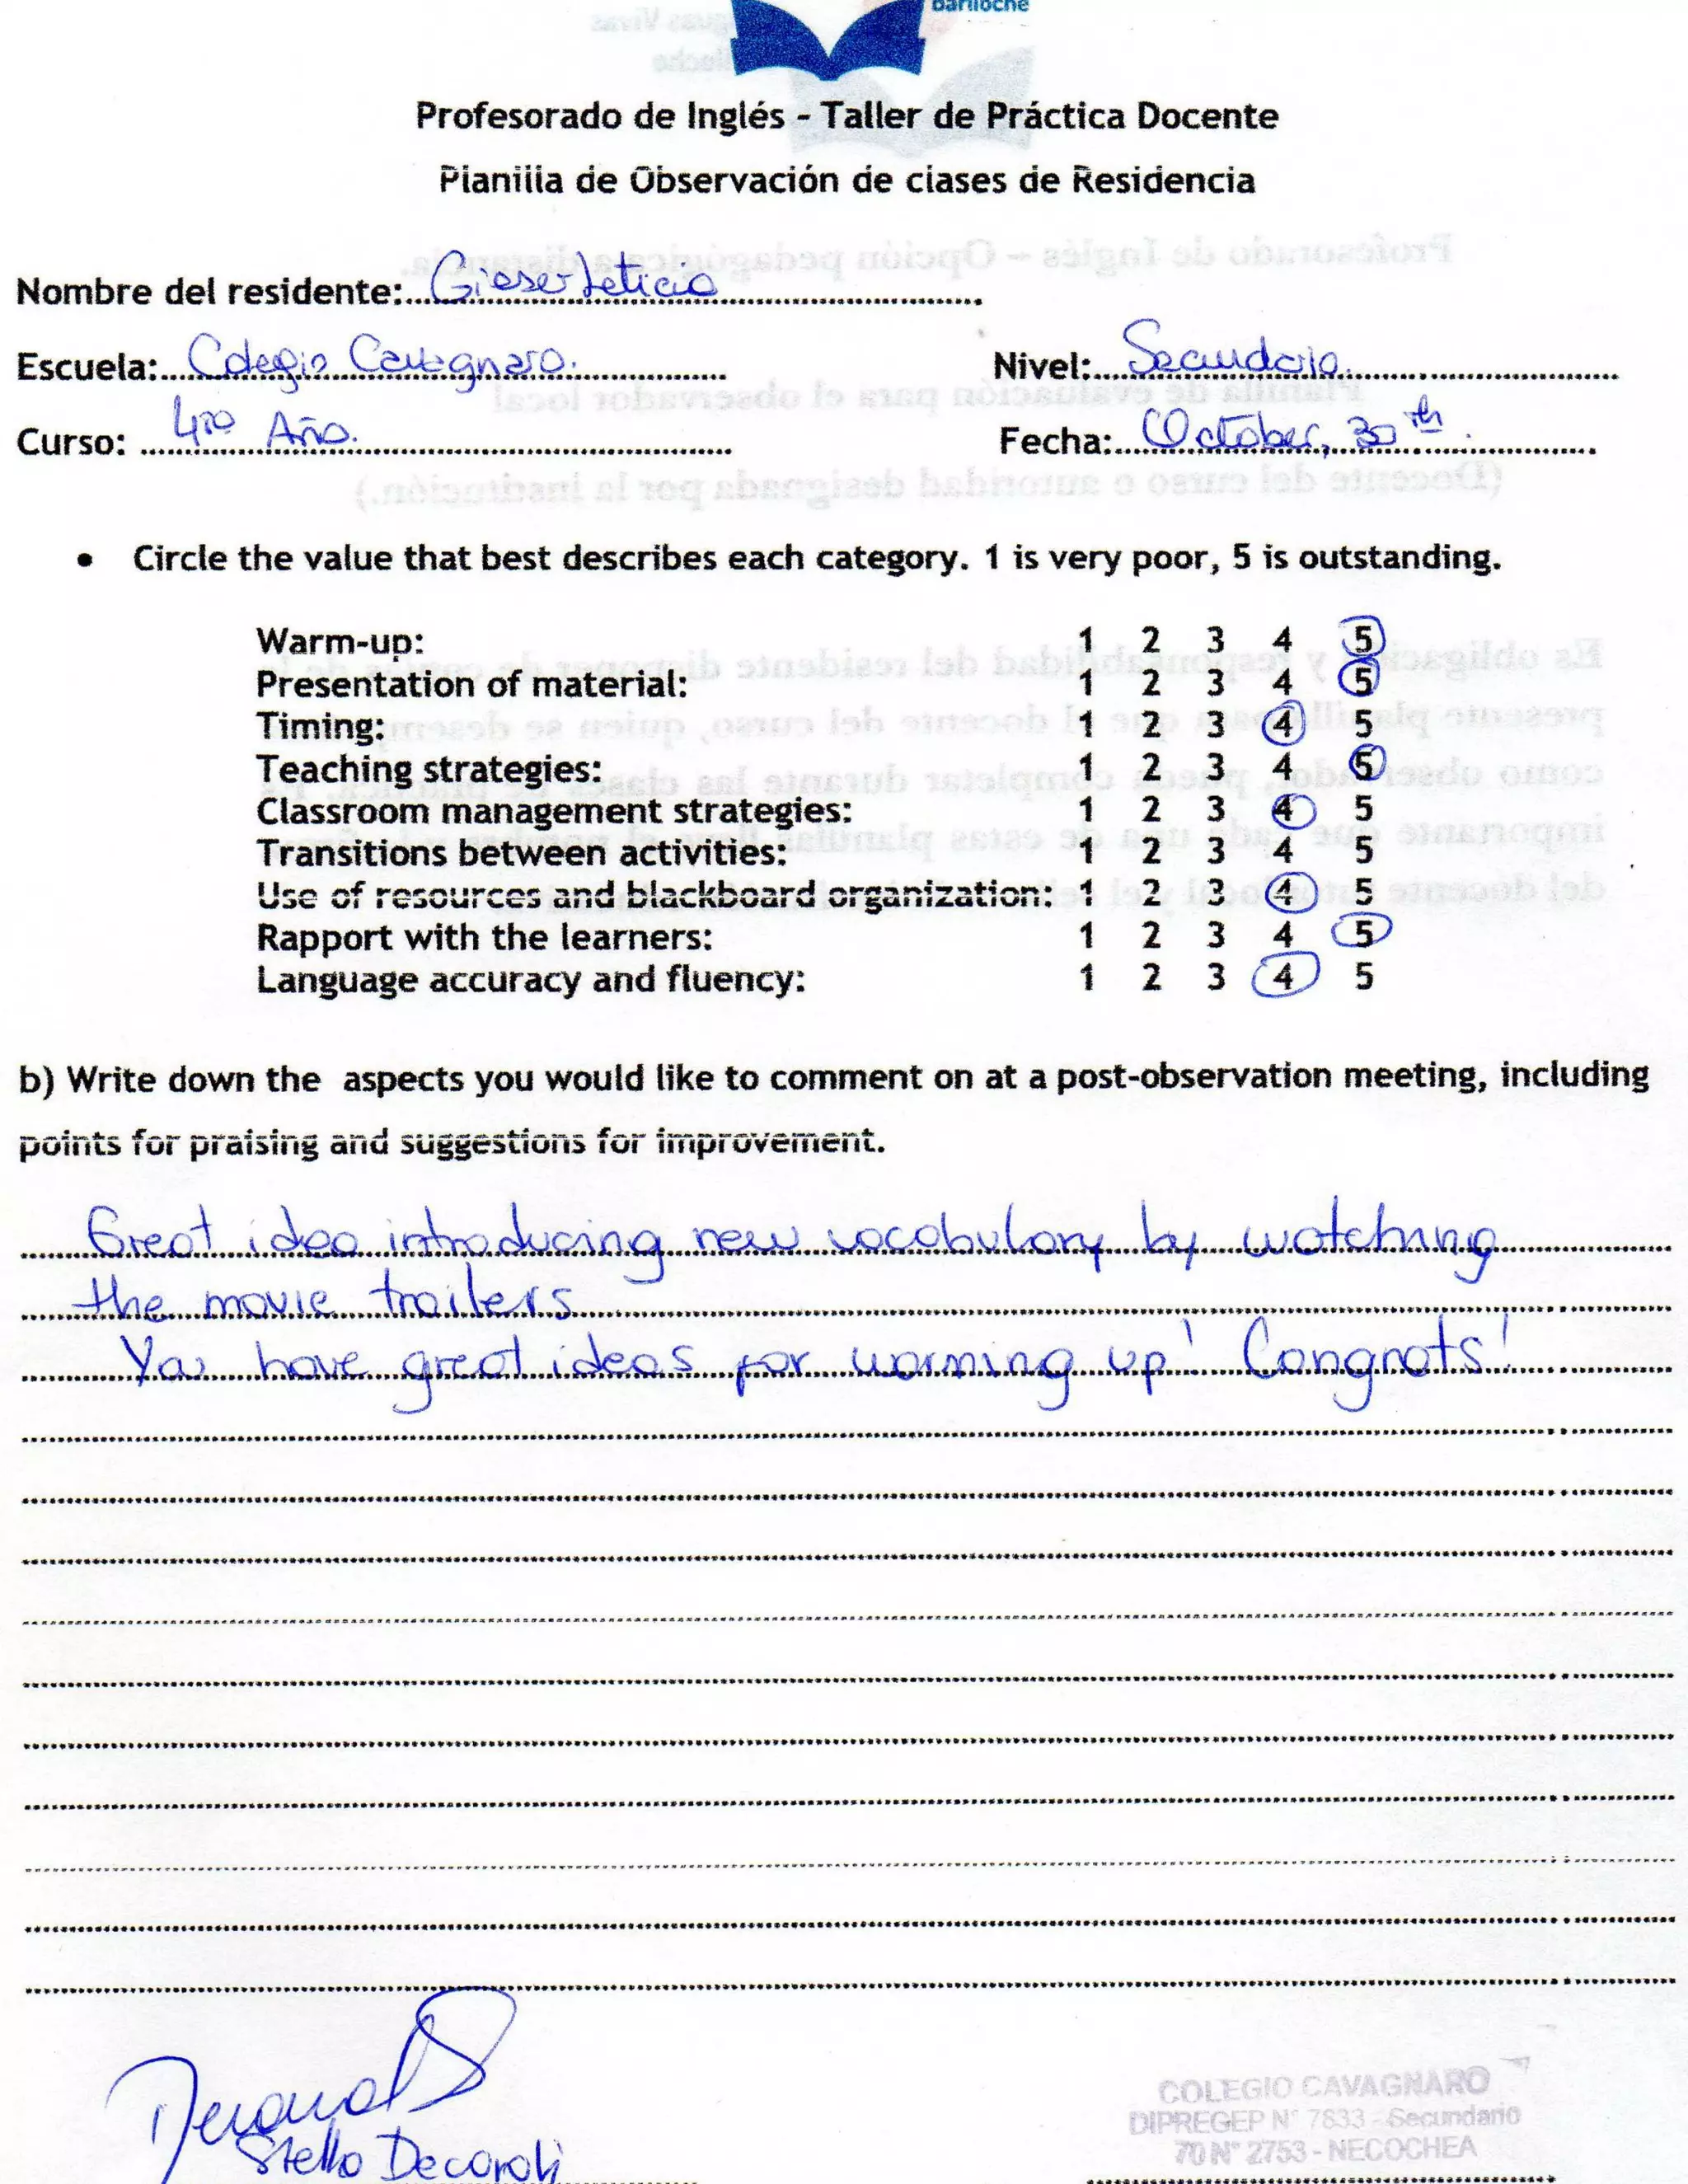 Bariloche
Profesorado de Inglés - Taller de Práctica Docente
Planilla de Observación de clases de Residencia
Nombre del residente: Gieser Leticia
Escuela: Colegio Cavagnaro. Nivel: Secundaria
Curso: 4to Año. Fecha: October, 30th.
• Circle the value that best describes each category. 1 is very poor, 5 is outstanding.
Warm-up: 1 2 3 4 5
Presentation of material: 1 2 3 4 5
Timing: 1 2 3 4 5
Teaching strategies: 1 2 3 4 5
Classroom management strategies: 1 2 3 4 5
Transitions between activities: 1 2 3 4 5
Use of resources and blackboard organization: 1 2 3 4 5
Rapport with the learners: 1 2 3 4 5
Language accuracy and fluency: 1 2 3 4 5
b) Write down the aspects you would like to comment on at a post-observation meeting, including
points for praising and suggestions for improvement.
Great idea introducing new vocabulary by watching
the movie trailers
You have great ideas for warming up! Congrats!
Stella Decaroli
COLEGIO CAVAGNARO
DIPREGEP N° 7633 - Secundario
70 N° 2753 - NECOCHEA